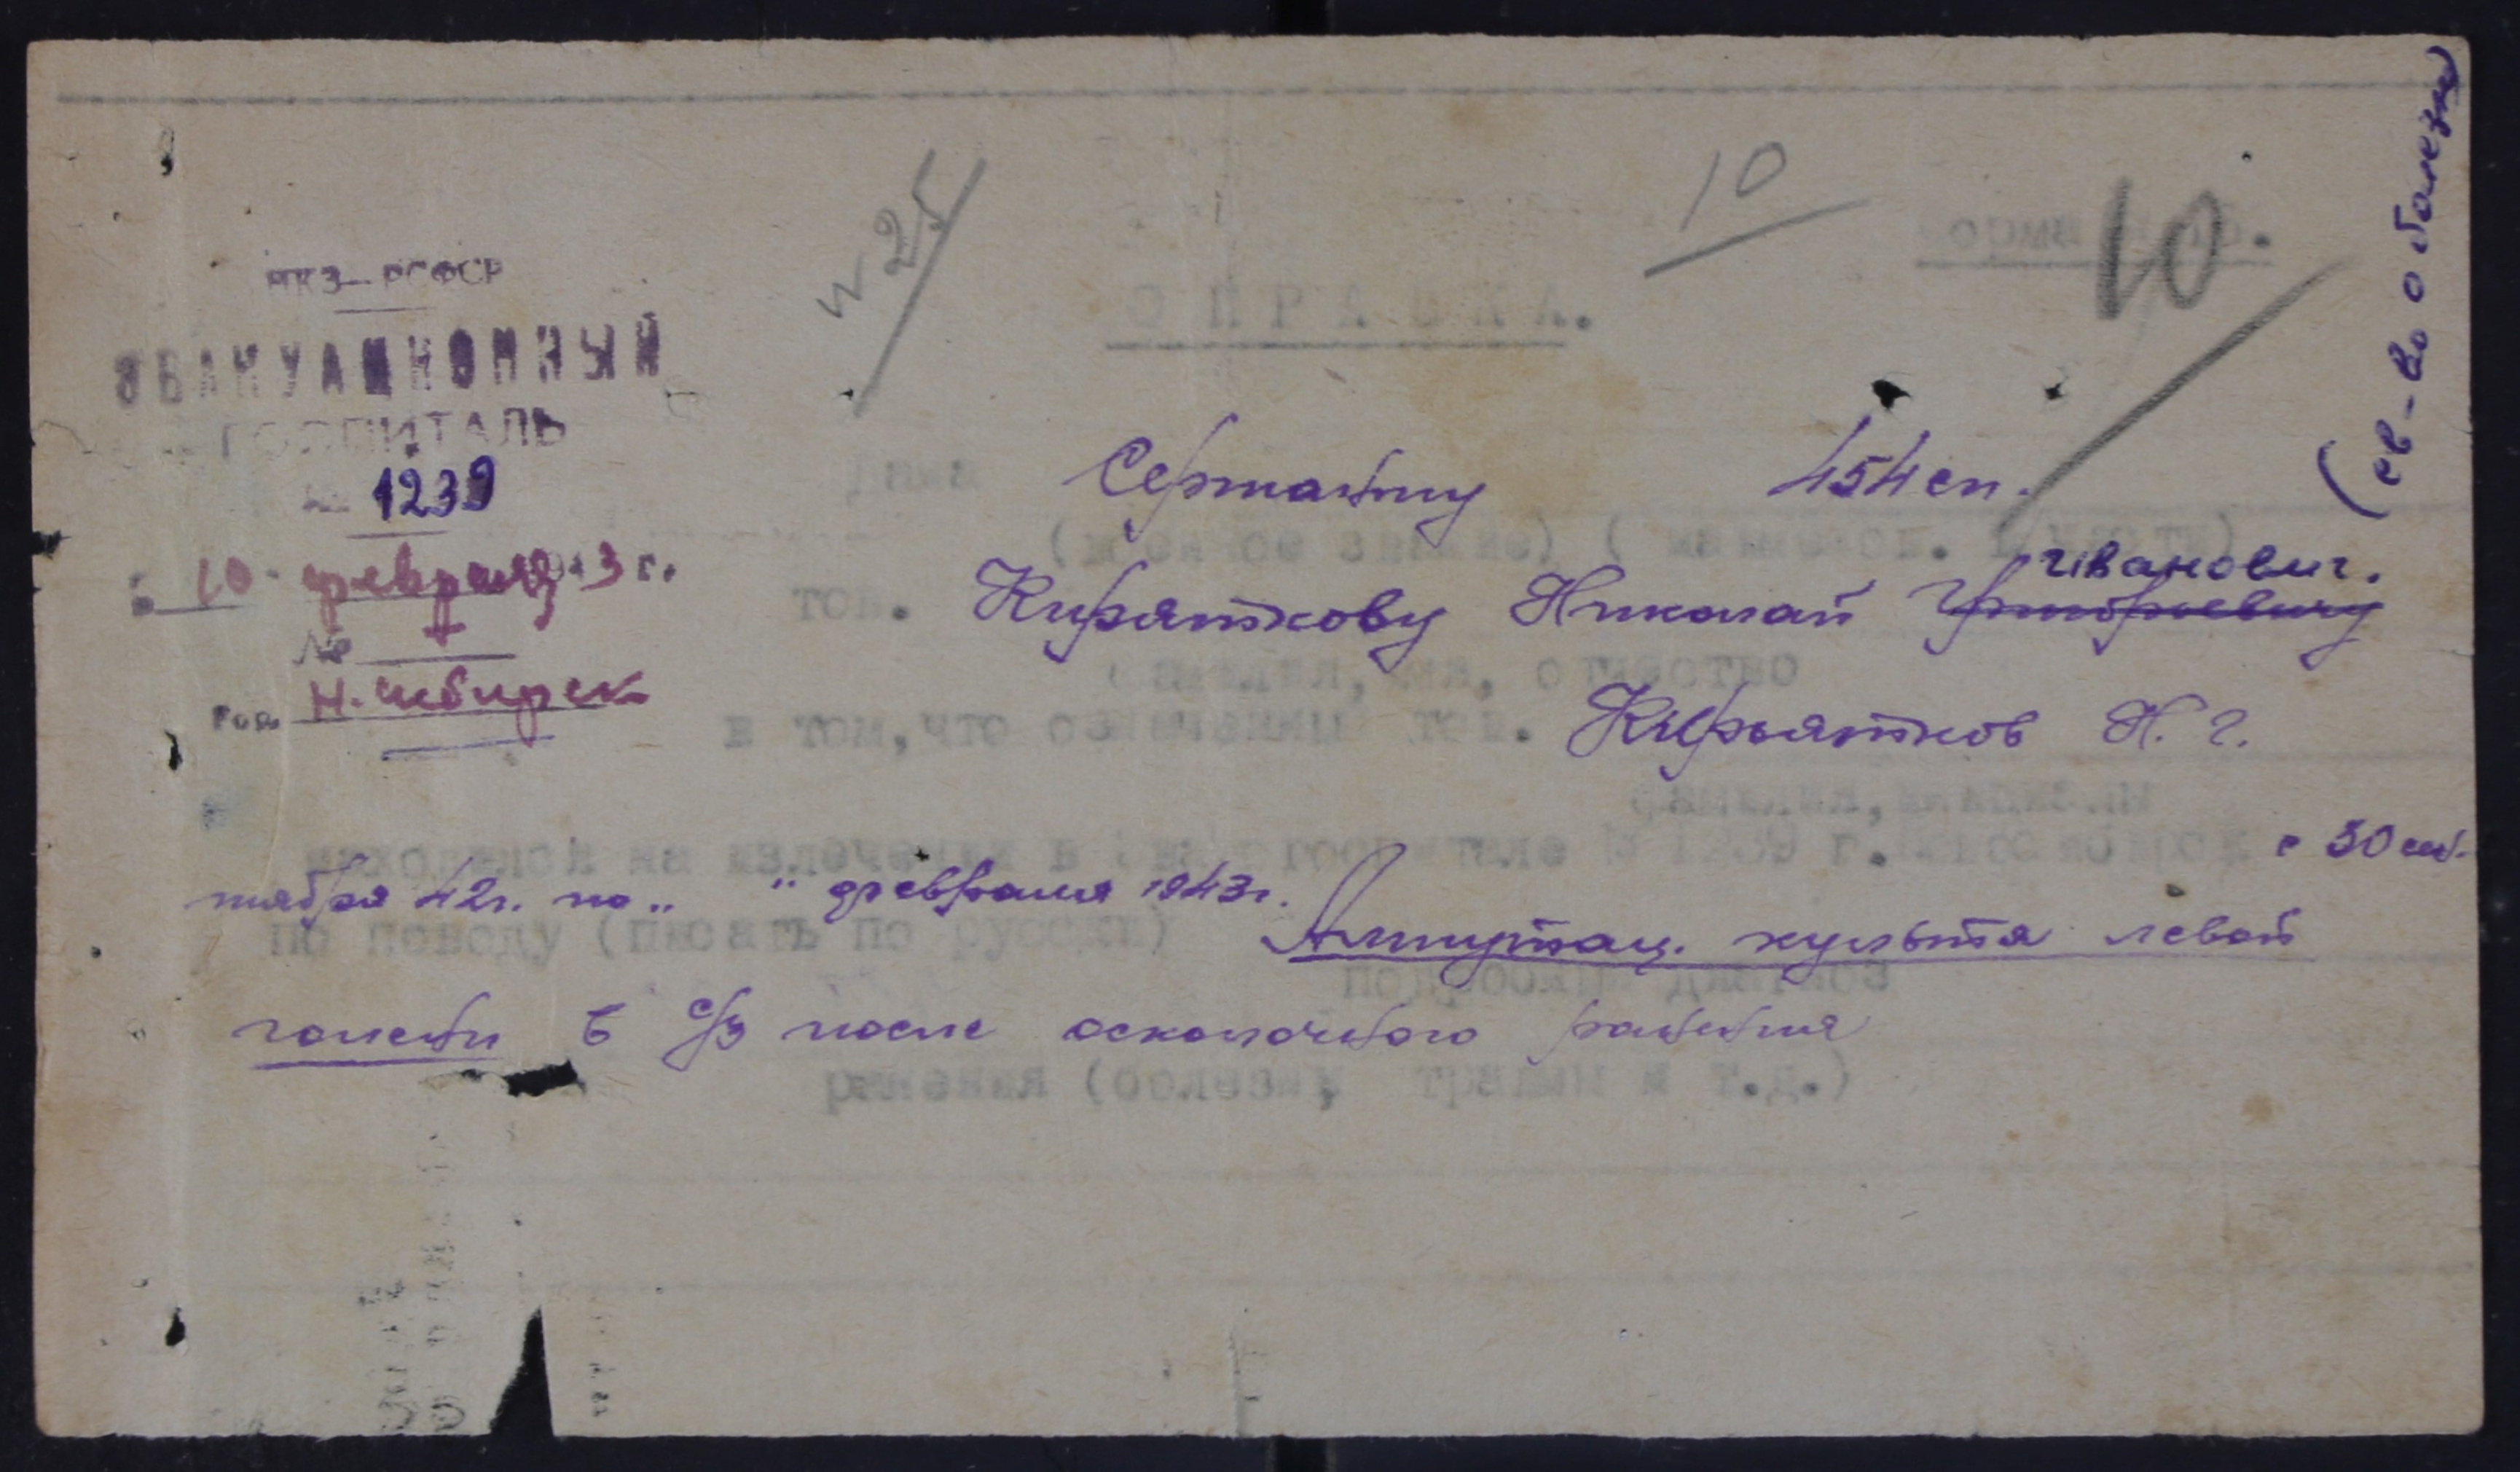 (св-во о болезни)
№ 25
10
10
Форма № 16.
СПРАВКА.
НКЗ—РСФСР
ЭВАКУАЦИОННЫЙ
ГОСПИТАЛЬ
№ 1239
"10" февраля 1943 г.
№
гор. Н.-сибирск
Дана Сержанту 454 сп.
(воинское звание) (наименов. в/части)
Иванович.
тов. Киряткову Николай Григорьевичу
фамилия, имя, отчество
в том, что означенный тов. Кирьятков Н. Г.
фамилия, инициалы
находился на излечении в эвакогоспитале № 1239 г. Новосибирск с 30 сен-
тября 42г. по " " февраля 1943г.
по поводу (писать по русски) Ампутац. культя левой
подробный диагноз
голени в с/з после осколочного ранения
ранения (болезни, травмы и т.д.)